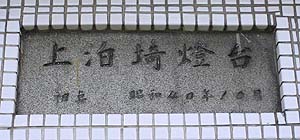 上泊埼燈台
初点 昭和40年10月